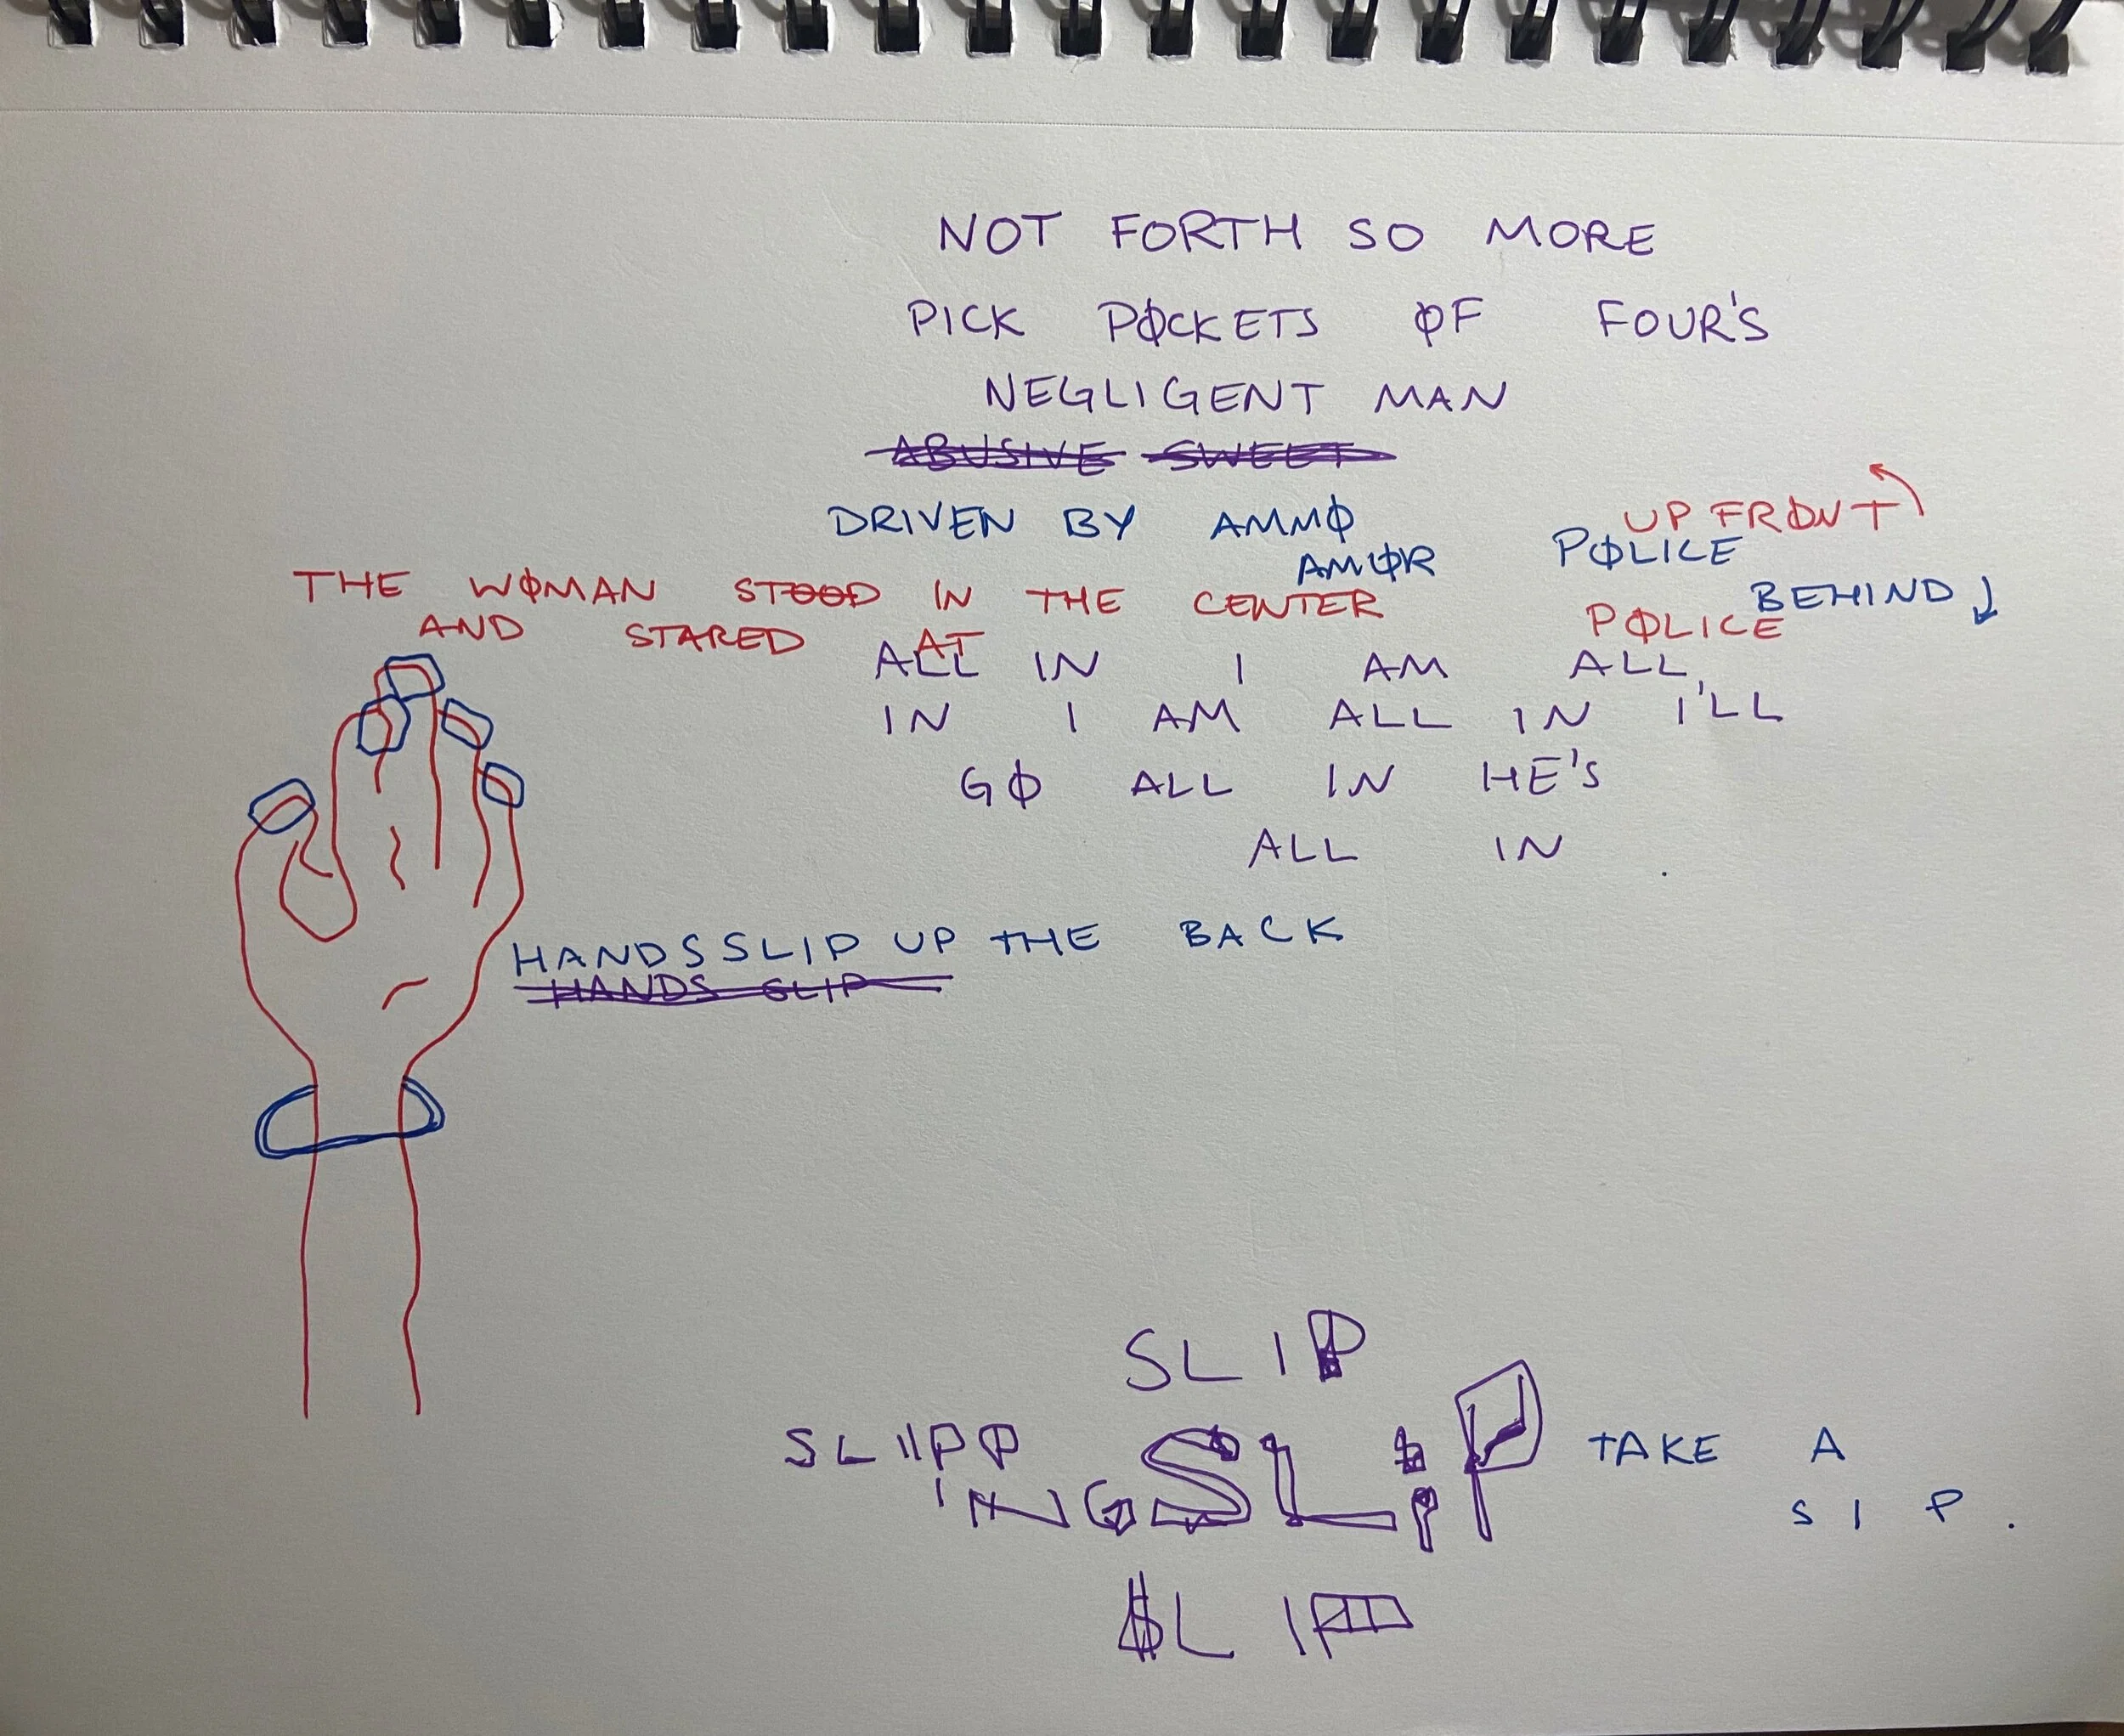 NOT FORTH SO MORE
PICK PØCKETS ØF FOUR'S
NEGLIGENT MAN
ABUSIVE SWEET
DRIVEN BY AMMØ
AMØR
UP FRØNT
PØLICE
BEHIND
PØLICE
THE WØMAN STOOD IN THE CENTER
AND STARED AT
ALL IN I AM ALL
IN I AM ALL IN I'LL
GØ ALL IN HE'S
ALL IN
HANDS SLIP UP THE BACK
HANDS SLIP
SLIP
SLIIPP
ING
SLIP
TAKE A
SIP.
$LIP